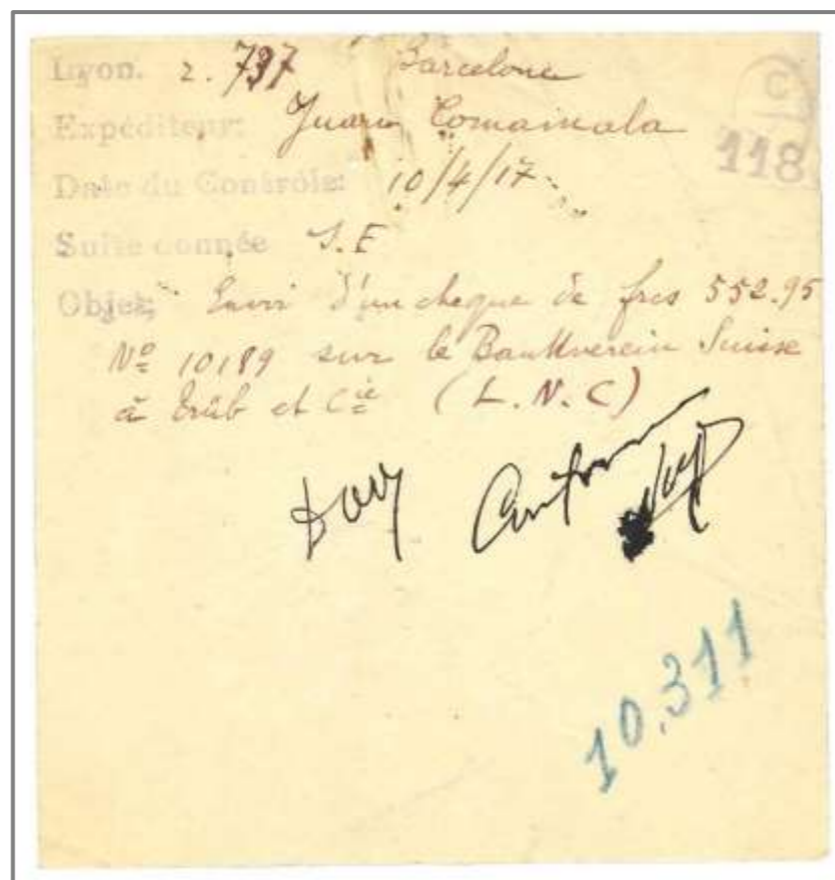 Lyon. 2. 737 Barcelone
C
Expéditeur: Juan Comamala
118
Date du Contrôle: 10/4/17
Suite donnée S.E
Objet; Envoi d'un cheque de frcs 552.95
Nº 10189 sur le Bankverein Suisse
à Trüb et Cie (L.N.C)
10.311